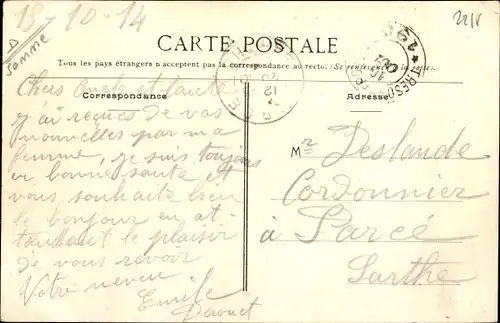 18-10-14
Somme
CARTE POSTALE
Tous les pays étrangers n'acceptent pas la correspondance au recto. (Se renseigner à la poste).
Correspondance
Adresse
Chers Oncle et tante
j'ai reçues de vos
nouvelles par ma
femme, je suis toujours
en bonne santé et
vous souhaite bien
le bonjour en at-
tendant le plaisir
de vous revoir
Votre neveu
Emile
Mr Deslande
Cordonnier
à Parcé
Sarthe